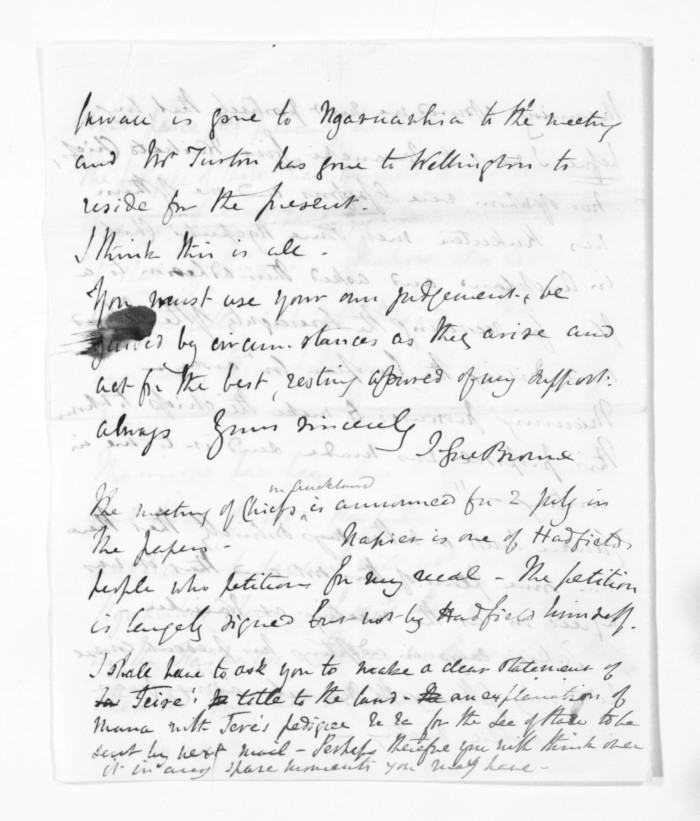 is gone to Ngaruawhia to the meeting
and Mr Turton has gone to Wellington to
reside for the present.
I think this is all.
You must use your own judgement, be
guided by circumstances as they arise and
act for the best, resting assured of my support.
always Yours sincerely
T Gore Browne
in Auckland
The meeting of Chiefs is announced for 2 July in
the papers - Napier is one of Hadfields
people who petitions for my recal - The petition
is largely signed but not by Hadfield himself.
I shall have to ask you to make a clear statement of
Teira's title to the land - an explanation of
Mana with Teira's pedigree &c &c for the Sec of State to be
sent by next mail - Perhaps therefore you will think over
it in any spare moments you may have -